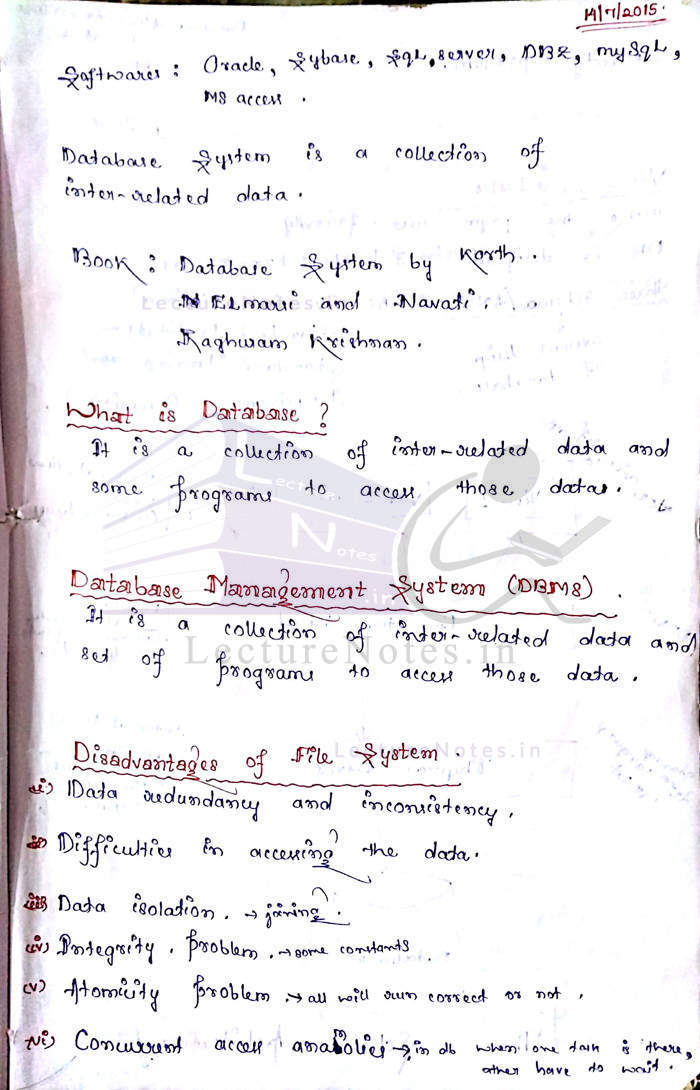 14/7/2015.
Softwares : Oracle, Sybase, SQL server, DB2, mySQL,
MS access .
Database System is a collection of
inter-related data .
BOOK : Database System by Korth..
N ELmarsi and Navati. .
Raghuram Krishnan .
What is Database ?
It is a collection of inter-related data and
some programs to access those datas.
Database Management System (DBMS) .
It is a collection of inter-related data and
set of programs to access those data .
Disadvantages of File System .
i) Data redundancy and inconsistency.
ii) Difficulties in accessing the data.
iii) Data isolation. → joining .
iv) Integrity . Problem. → some constants
(v) Atomicity Problem. → all will run correct or not .
vi) Concurrant access → in db when one task is there,
other have to wait .
Lecture Notes
LectureNotes.in
LectureNotes.in